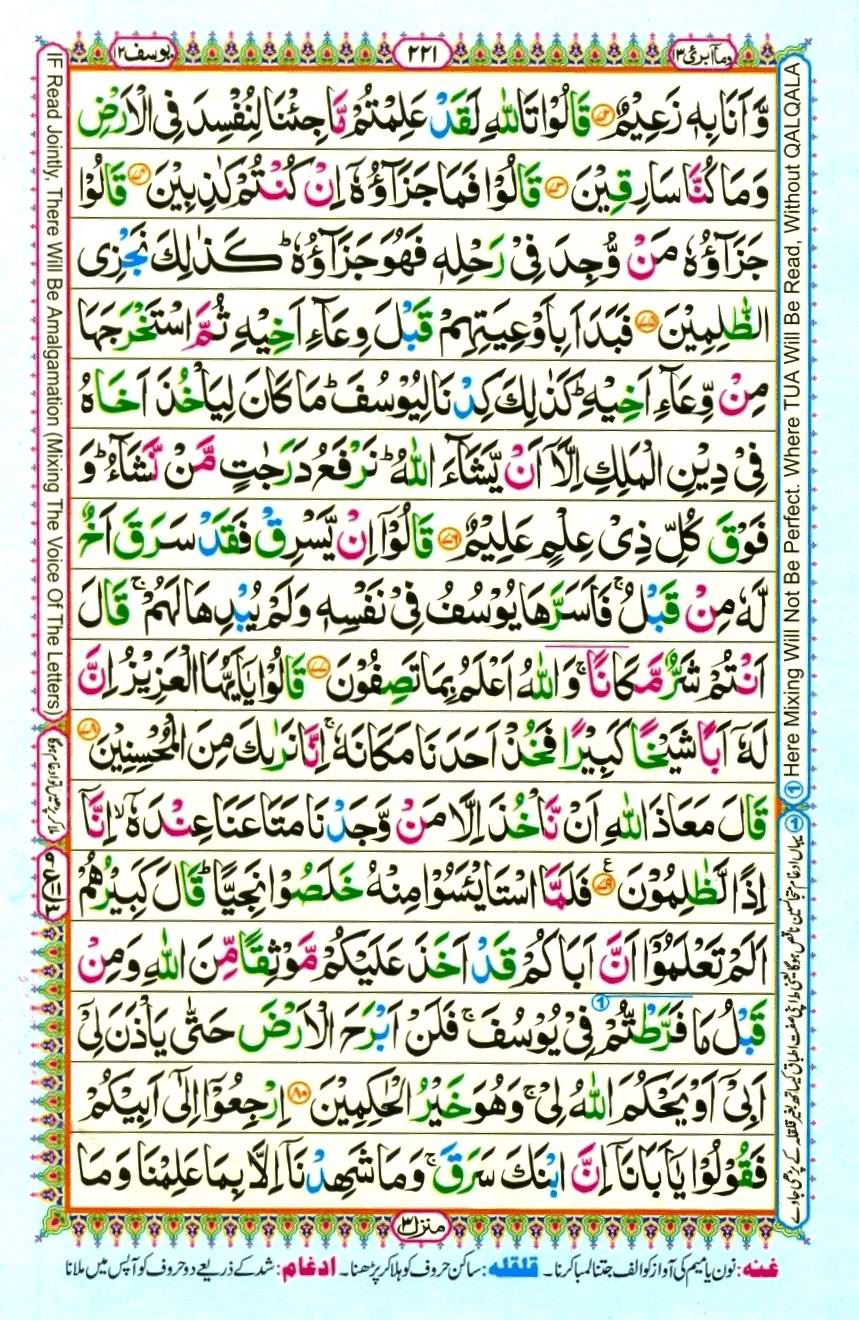 وما ابرئ ۱۳
۲۲۱
یوسف ۱۲
وَّاَنَا بِهٖ زَعِيْمٌ ﴿۷۲﴾ قَالُوْا تَاللّٰهِ لَقَدْ عَلِمْتُمْ مَّا جِئْنَا لِنُفْسِدَ فِى الْاَرْضِ
وَمَا كُنَّا سَارِقِيْنَ ﴿۷۳﴾ قَالُوْا فَمَا جَزَآؤُهٗۤ اِنْ كُنْتُمْ كٰذِبِيْنَ ﴿۷۴﴾ قَالُوْا
جَزَآؤُهٗ مَنْ وُّجِدَ فِىْ رَحْلِهٖ فَهُوَ جَزَآؤُهٗ ؕ كَذٰلِكَ نَجْزِى
الظّٰلِمِيْنَ ﴿۷۵﴾ فَبَدَاَ بِاَوْعِيَتِهِمْ قَبْلَ وِعَآءِ اَخِيْهِ ثُمَّ اسْتَخْرَجَهَا
مِنْ وِّعَآءِ اَخِيْهِ ؕ كَذٰلِكَ كِدْنَا لِيُوْسُفَ ؕ مَا كَانَ لِيَاْخُذَ اَخَاهُ
فِىْ دِيْنِ الْمَلِكِ اِلَّاۤ اَنْ يَّشَآءَ اللّٰهُ ؕ نَرْفَعُ دَرَجٰتٍ مَّنْ نَّشَآءُ ؕ وَ
فَوْقَ كُلِّ ذِىْ عِلْمٍ عَلِيْمٌ ﴿۷۶﴾ قَالُوْۤا اِنْ يَّسْرِقْ فَقَدْ سَرَقَ اَخٌ
لَّهٗ مِنْ قَبْلُ ۚ فَاَسَرَّهَا يُوْسُفُ فِىْ نَفْسِهٖ وَلَمْ يُبْدِهَا لَهُمْ ۚ قَالَ
اَنْتُمْ شَرٌّ مَّكَانًا ۚ وَاللّٰهُ اَعْلَمُ بِمَا تَصِفُوْنَ ﴿۷۷﴾ قَالُوْا يٰۤاَيُّهَا الْعَزِيْزُ اِنَّ
لَهٗۤ اَبًا شَيْخًا كَبِيْرًا فَخُذْ اَحَدَنَا مَكَانَهٗ ۚ اِنَّا نَرٰىكَ مِنَ الْمُحْسِنِيْنَ ﴿۷۸﴾
قَالَ مَعَاذَ اللّٰهِ اَنْ نَّاْخُذَ اِلَّا مَنْ وَّجَدْنَا مَتَاعَنَا عِنْدَهٗۤ ۙ اِنَّاۤ
اِذًا لَّظٰلِمُوْنَ ﴿۷۹﴾ فَلَمَّا اسْتَايْـَٔسُوْا مِنْهُ خَلَصُوْا نَجِيًّا ؕ قَالَ كَبِيْرُهُمْ
اَلَمْ تَعْلَمُوْۤا اَنَّ اَبَاكُمْ قَدْ اَخَذَ عَلَيْكُمْ مَّوْثِقًا مِّنَ اللّٰهِ وَمِنْ
قَبْلُ مَا فَرَّطْتُّمْ ① فِىْ يُوْسُفَ ۚ فَلَنْ اَبْرَحَ الْاَرْضَ حَتّٰى يَاْذَنَ لِىْۤ
اَبِىْۤ اَوْ يَحْكُمَ اللّٰهُ لِىْ ۚ وَهُوَ خَيْرُ الْحٰكِمِيْنَ ﴿۸۰﴾ اِرْجِعُوْۤا اِلٰٓى اَبِيْكُمْ
فَقُوْلُوْا يٰۤاَبَانَاۤ اِنَّ ابْنَكَ سَرَقَ ۚ وَمَا شَهِدْنَاۤ اِلَّا بِمَا عَلِمْنَا وَمَا
منزل ۳
غنه: نون یا میم کی آواز کو الف جتنا لمبا کرنا۔ قلقله: ساکن حروف کو ہلا کر پڑھنا۔ ادغام: شد کے ذریعے دو حروف کو آپس میں ملانا
① Here Mixing Will Not Be Perfect. Where TUA Will Be Read, Without QALQALA
IF Read Jointly, There Will Be Amalgamation (Mixing The Voice Of The Letters)